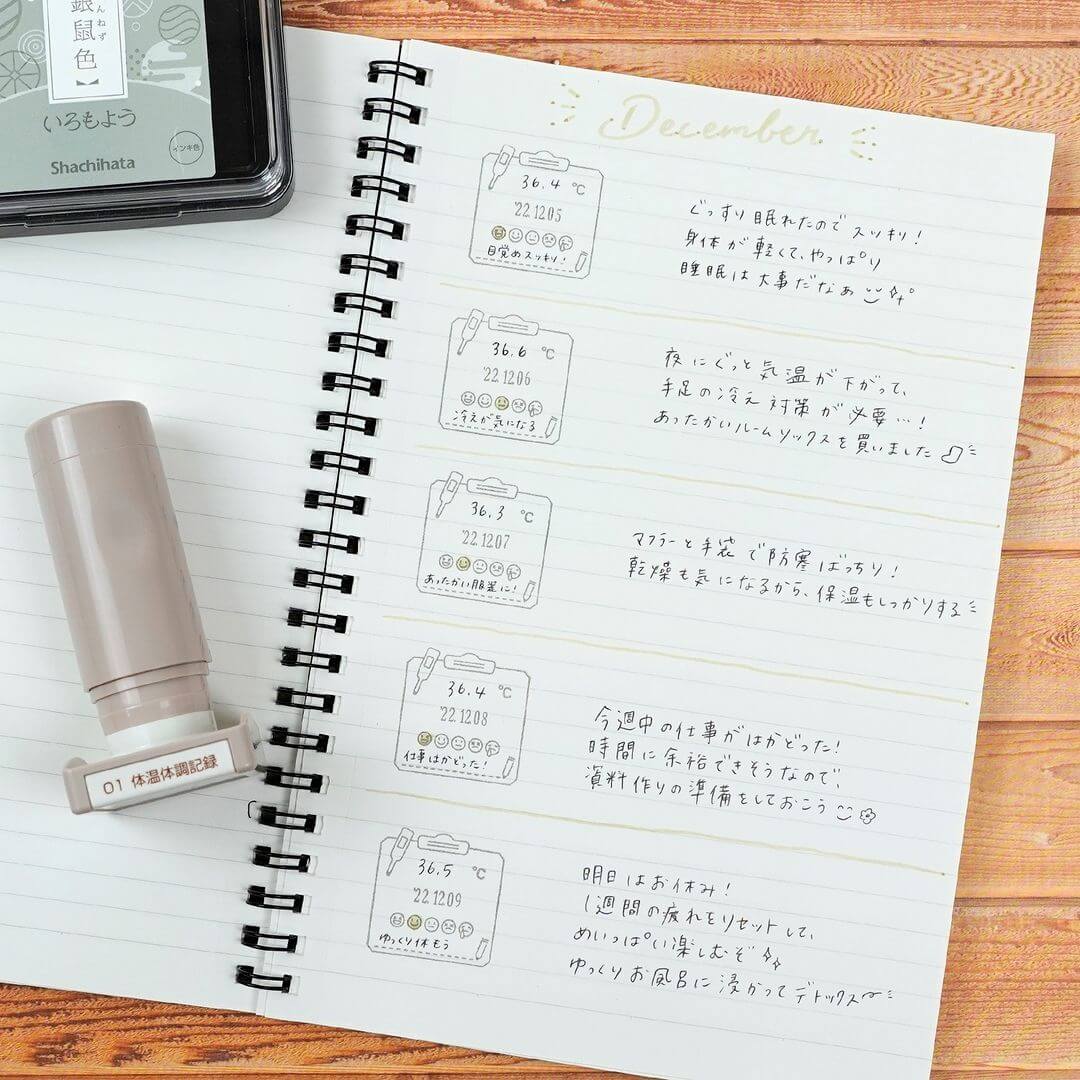 銀鼠色
んねず
いろもよう
インキ色
Shachihata
01 体温体調記録
December
36.4 ℃
'22.12 05
目覚めスッキリ!
ぐっすり眠れたのでスッキリ!
身体が軽くて、やっぱり
睡眠は大事だなぁ
36.6 ℃
'22.12 06
冷えが気になる
夜にぐっと気温が下がって、
手足の冷え対策が必要…!
あったかいルームソックスを買いました
36.3 ℃
'22.12 07
あったかい服装に!
マフラーと手袋で防寒ばっちり!
乾燥も気になるから、保湿もしっかりする
36.4 ℃
'22.12 08
仕事はかどった!
今週中の仕事がはかどった!
時間に余裕できそうなので、
資料作りの準備をしておこう
36.5 ℃
'22.12 09
ゆっくり休もう
明日はお休み!
1週間の疲れをリセットして、
めいっぱい楽しむぞ
ゆっくりお風呂に浸かってデトックス〜